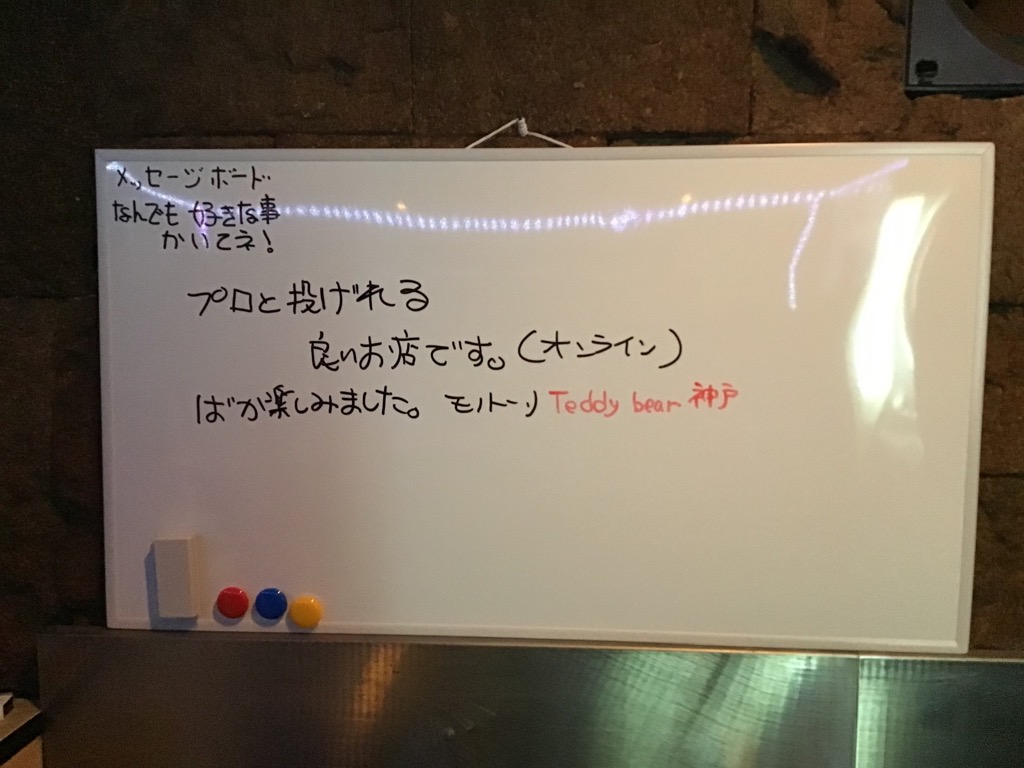 メッセージボード
なんでも好きな事
かいてネ!
プロと投げれる
良いお店です。(オンライン)
ばか楽しみました。 モリトーリ Teddy bear 神戸